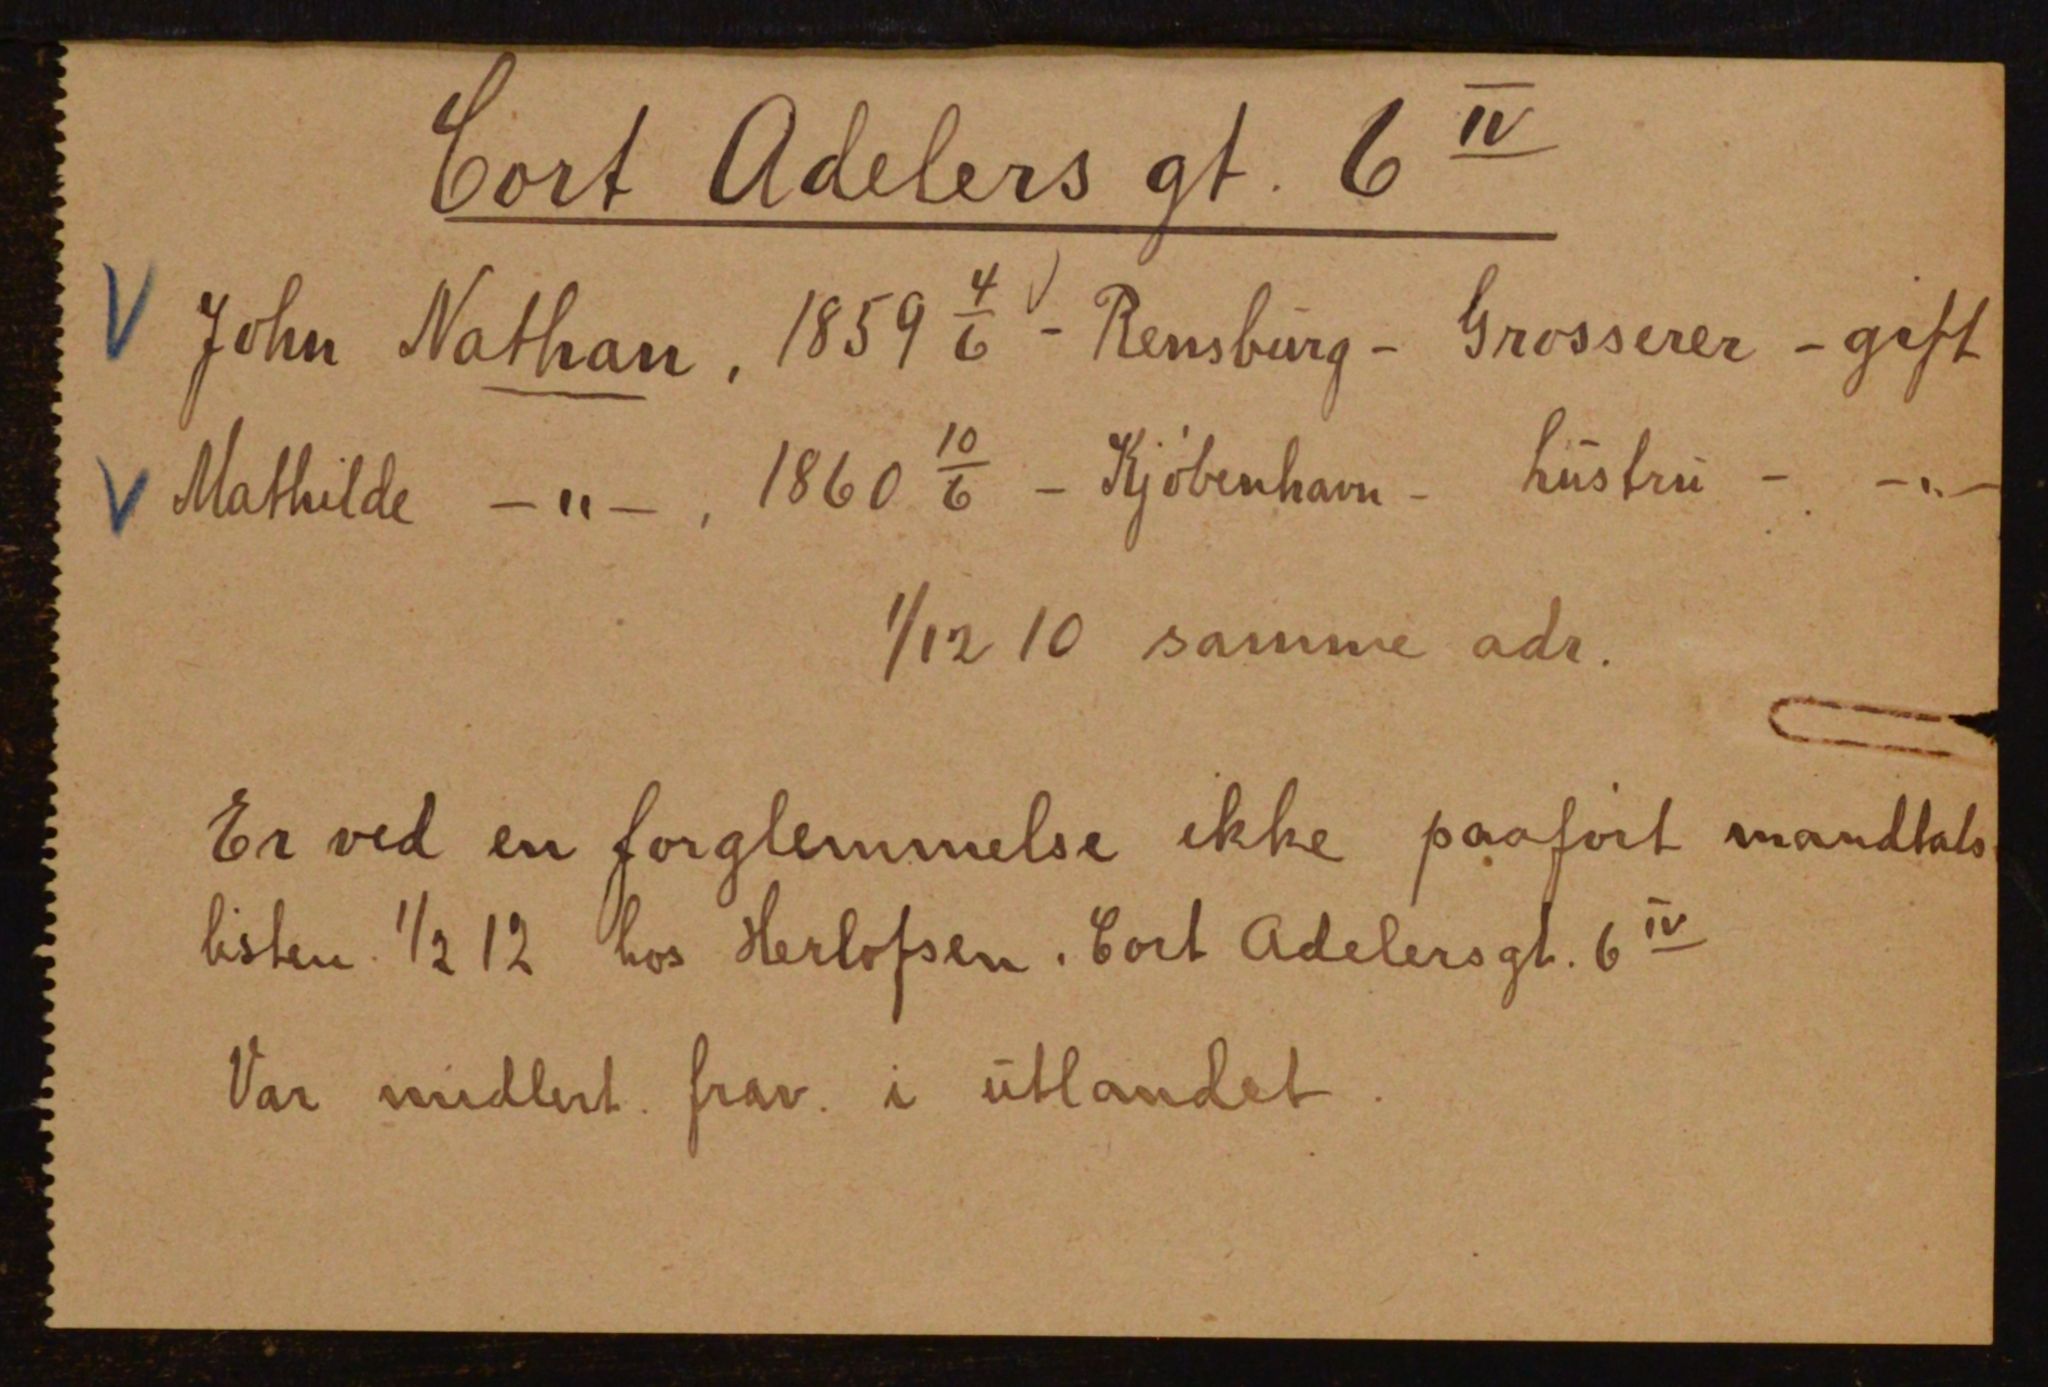 Cort Adelers gt. 6 IV
V John Nathan, 1859 4/6 - Rensburg - Grosserer - gift
V Mathilde -"-, 1860 10/6 - Kjöbenhavn - hustru - -"-
1/12 10 samme adr.
Er ved en forglemmelse ikke paaført mandtals
listen 1/2 12 hos Herlofsen. Cort Adelersgt. 6 IV
Var midlert. frav. i utlandet.